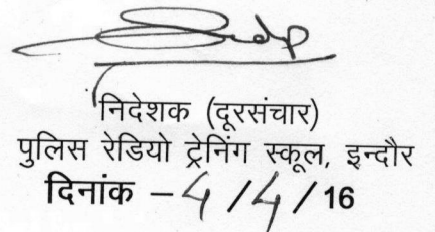 निदेशक (दूरसंचार)
पुलिस रेडियो ट्रेनिंग स्कूल, इन्दौर
दिनांक – 4/4/16